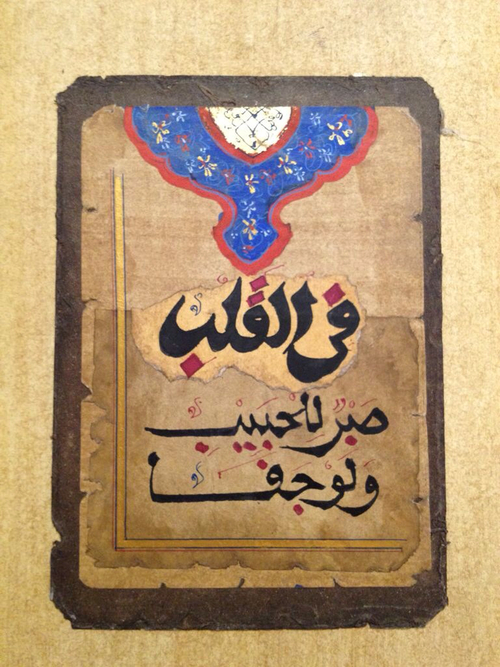 فى القلب
صبرٌ للحبيب
ولو جفا